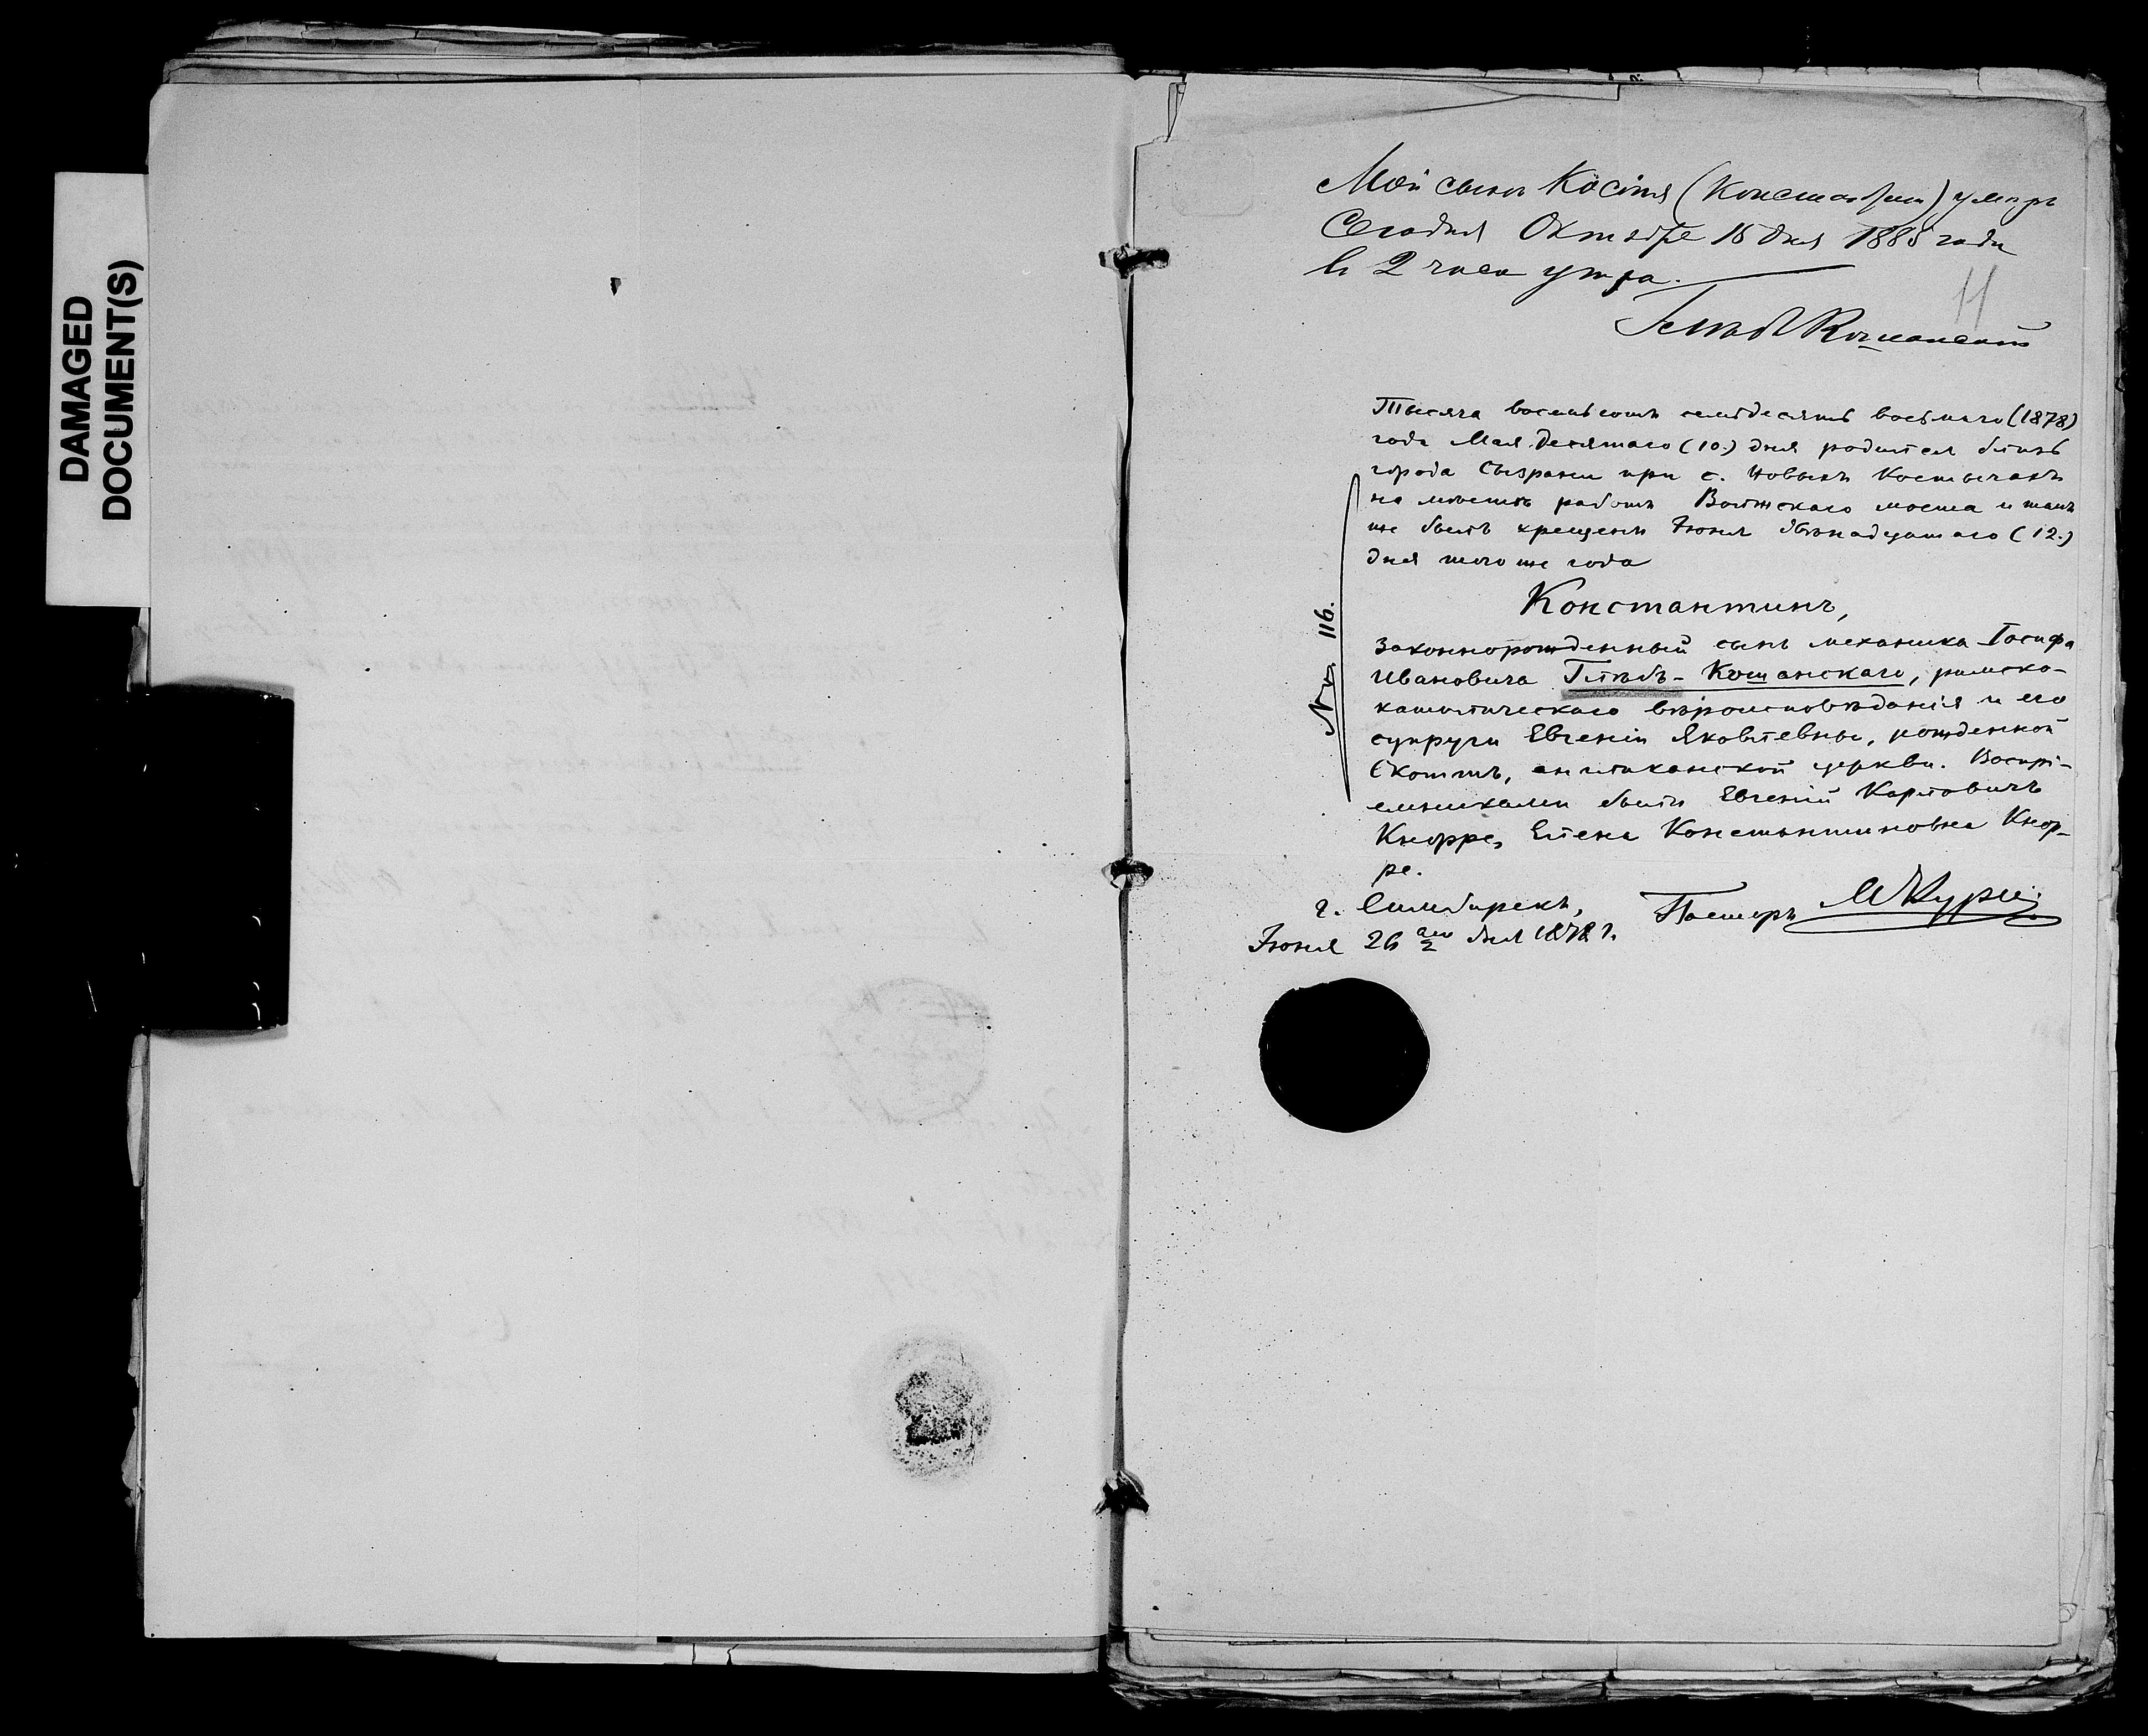 DAMAGED
DOCUMENT(S)
Мой сынъ Костя (Константин) умеръ
Сегодня Октября 15 дня 1885 года
въ 2 часа утра.
11
Глѣбъ Кошанскій
Тысяча восемьсотъ семьдесятъ восьмаго (1878)
года Мая десятаго (10.) дня родился близь
города Сызрани при с. Новыхъ Костычахъ
на мѣстѣ работъ Волжскаго моста и тамъ
же былъ крещенъ Іюня двѣнадцатаго (12.)
дня того же года
Константинъ,
законнорожденный сынъ механика Іосифа
Ивановича Глѣбъ-Кошанскаго, римско-
католическаго вѣроисповѣданія и его
супруги Евгеніи Яковлевны, рожденной
Скоттъ, англиканской церкви. Воспрі-
емниками были Евгеній Карловичъ
Кнорре, Елена Константиновна Кнор-
ре.
No. 116.
г. Симбирскъ,
Пасторъ
Іюня 26 дня 1878 г.